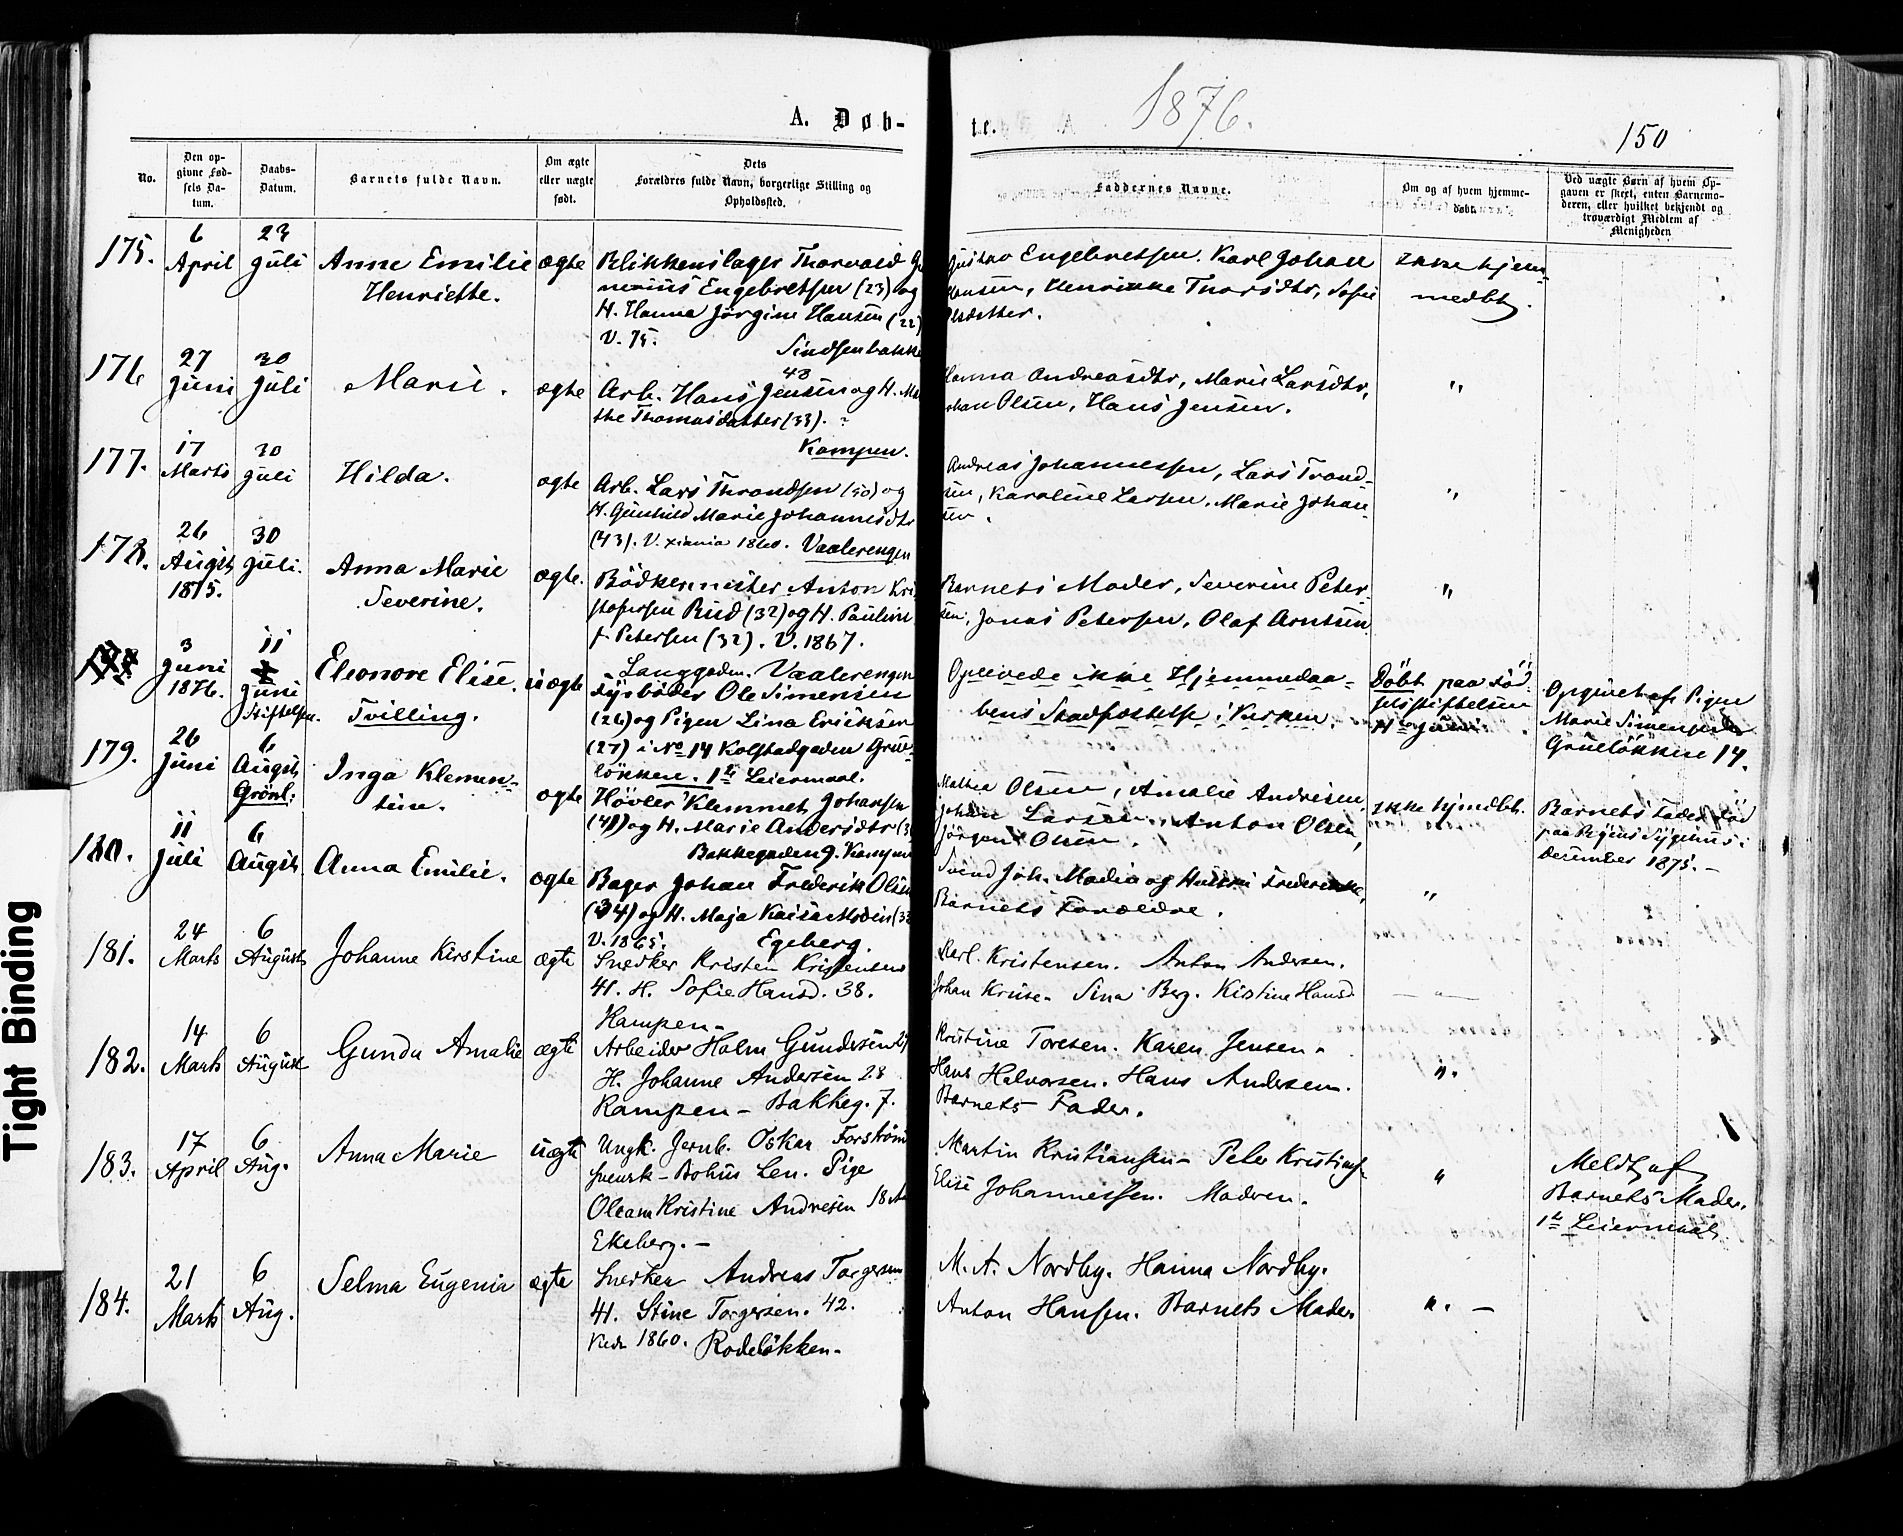 A. Døb-
te.
1876.
150
No.
Den op-
givne Fød-
sels Da-
tum.
Daabs-
Datum.
Barnets fulde Navn.
Om ægte
eller uægte
født.
Dets
Forældres fulde Navn, borgerlige Stilling og
Opholdssted.
Faddernes Navne.
Om og af hvem hjemme-
døbt.
Ved uægte Børn af hvem Op-
gaven er skeet, enten Barnemo-
deren, eller hvilket bekjendt og
troværdigt Medlem af
Menigheden
175.
6
April
23
Juli
Anne Emilie
Henriette.
ægte
Blikkenslager Thorvald
Engebretsen (23) og
H. Hanna Jörgine Hansen (22)
V. 75.
Gustav Engebretsen. Karl Johan
Hansen, Henrikke Thorsdtr, Sofie
Olsdatter.
Ikke hjem-
medbt.
176
27
Juni
30
Juli
Marie.
ægte
Sindsenbakke
43
Arb. Hans Jensen og H. Ma
the Thomasdatter (33).
Hanna Andreasdtr, Marie Larsdtr,
Johan Olsen, Hans Jensen.
"
177.
17
Marts
30
Juli
Hilda.
ægte
Kampen.
Arb. Lars Throndsen (50) og
H. Gunhild Marie Johannesdtr
(43). V. Xiania 1860. Vaalerengen
Andreas Johannessen, Lars Trond-
sen, Karoline Larsen, Marie Johan-
sen.
"
178.
26
August
1875.
30
Juli.
Anna Marie
Severine.
ægte.
Bödkermester Anton Kri
stofersen Rud (32) og H. Pauline
f. Petersen (32). V. 1867.
Langgaden. Vaalerengen
Barnets Moder, Severine Peter-
sen, Jonas Petersen, Olaf Arntsen
"
3
Juni
1876.
11
Juni
Stiftelsen.
Eleonore Elise.
Tvilling.
uægte
Fyrböder Ole Simensen
(26) og Pigen Lina Eriksen
(27) i No 14 Kolstadgaden Grue-
lökken. 1ste Leiermaal.
Oplevede ikke Hjemmedaa-
bens Stadfæstelse i Kirken.
Döbt paa Föd-
selsstiftelsen
Juni
Opgivet af Pigen
Marie Simensen
Gruelökken 14.
179.
26
Juni
6
August
Grönl:
Inga Klemen-
tine.
ægte
Hövler Klemmet Johansen
(41) og H. Marie Andersdtr
Bakkegaden 9. Kampen
Mathea Olsen, Amalie Andresen,
Johan Larsen, Anton Olsen,
Jörgen Olsen.
Ikke hjmdbt.
Barnets Fader död
paa Rigens Sygehus i
December 1875. -
180.
11
Juli
6
August
Anna Emilie.
ægte
Bager Johan Frederik Olsen
(34) og H. Maja Kaisa Modin (33
V. 1865. Egeberg.
Svend Joh. Modin og Hustru Frederikke,
Barnets Forældre.
"
181.
24
Marts
6
August
Johanne Kirstine
ægte
Snedker Kristen Kristensen
41. H. Sofie Hansd. 38.
Kampen-
Karl. Kristensen. Anton Andersen.
Johan Kruse. Sina Berg. Kistine Hansd
— " —
182.
14
Marts
6
August
Gunda Amalie
ægte
Arbeider Halm Gundersen 29
H. Johanne Andersen 28
Kampen - Bakkeg. 7.
Kristine Toresen. Karen Jensen.
Hans Halvorsen. Hans Andersen.
Barnets Fader.
".
183.
17
April
6
Aug.
Anna Marie
uægte
Ungk. Jernb. Oskar Forström
Svensk - Bohus Len. Pige
Oleana Kristine Andresen 18 Aar
Ekeberg. -
Martin Kristiansen - Peter Kristians
Elise Johannessen. Modren.
"
Meldt af
Barnets Moder.
1ste Leiermaal
184.
21
Marts
6
Aug.
Selma Eugenia
ægte
Snedker Andreas Torgersen
41. Stine Torgersen. 42.
1860. Rodelökken-
M. A. Nordby. Hanna Nordby.
Anton Hansen. Barnets Moder
". —
Tight Binding